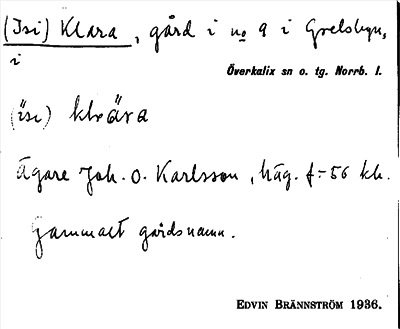 (Isi) Klara, gård i no 9 i Grelsbyn,
i
Överkalix sn o. tg. Norrb. l.
(isi) klāra
Ägare Joh. O. Karlsson, häg. f-56 kh.
Gammalt gårdsnamn.
EDVIN BRÄNNSTRÖM 1936.